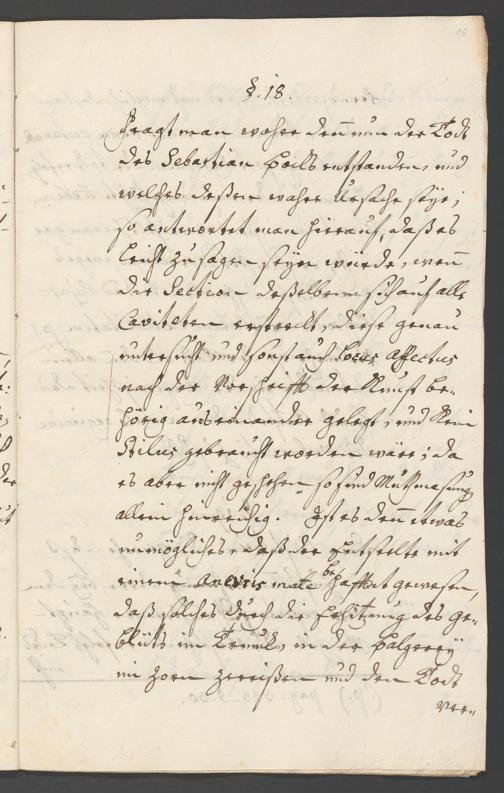 16
§. 18.
Fragt man woher den̄ nun der Todt
des Sebastian entstanden, und
welches deßen wahre Ursache seÿe;
so antwortet man hierauf, daß es
leicht zu sagen seÿn würde, wen̄
die Section deßelben sich auf alle
Caviteten erstreckt, diese genau
untersucht und sonst auch locus affectus
nach der Vorschrifft der Kunst be-
hörig auseinander gelegt, und kein
stilus gebraucht worden wäre; da
es aber nicht geschehen so sind Muthmasung
allein hinreichig. Ist es den̄ etwas
unmögliches, daß der Entseelte mit
einem anevrismate behafftet gewesen,
daß solches durch die Erhitzung des ge-
blüts im Trunck, in der balgereÿ
im Zorn zerreißen und den Todt
ver-